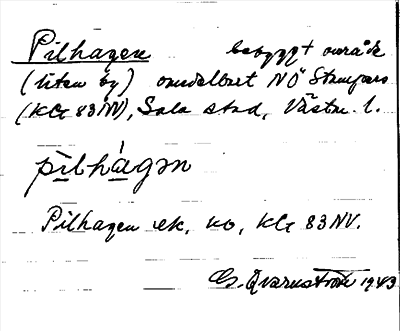 Pilhagen bebyggt område
(liten by) omedelbart NÖ Stampers
(KLG 83NV), Sala stad, Västm. l.
pìlhágən
Pilhagen ek, ko, KLG 83NV.
G. Qvarnström 1943